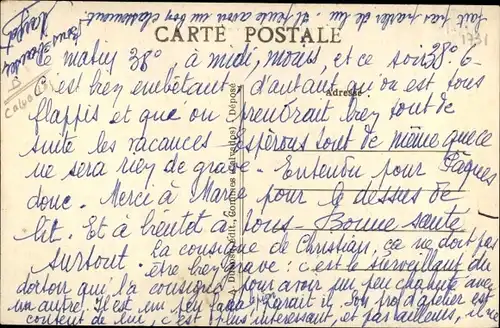 CARTE POSTALE
le matin 38°, à midi, moins, et ce soir 38° 6-
C'est bien embêtant, d'autant qu'on est tous
flappis et que on prendrait bien tout de
suite les vacances. Espérons tout de même que ce
ne sera rien de grave. Entendu pour Pâques
donc. Merci à Marie pour le dessus de
lit. Et à bientôt à tous. Bonne santé
surtout. La consigne de Christian, ça ne doit pas
être bien grave : c'est le surveillant du
dortoir qui l'a consigné pour avoir un peu chahuté avec
un autre. Il est un peu paraît-il. Son prof d'atelier est
content de lui, c'est plus intéressant, et par ailleurs, il
fait pas parler de lui. Il peut avoir un bon classement.
Adresse
édit., Gonneville (Calvados) (Déposé)
B
Calvados
1731